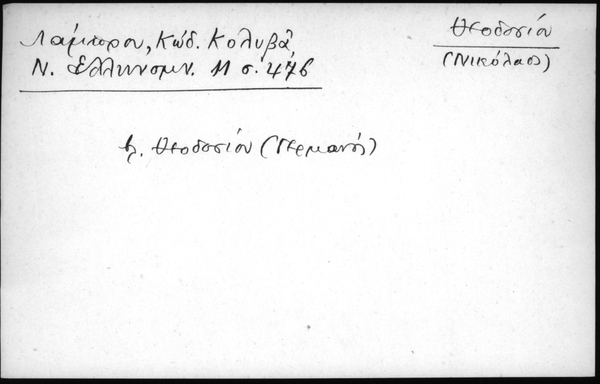 Λάμπρου, Κώδ. Κολυβᾶ
Ν. Ἑλληνομν. 11 σ. 476
Θεοδοσίου
(Νικόλαος)
βλ. Θεοδοσίου (Γερμανός)